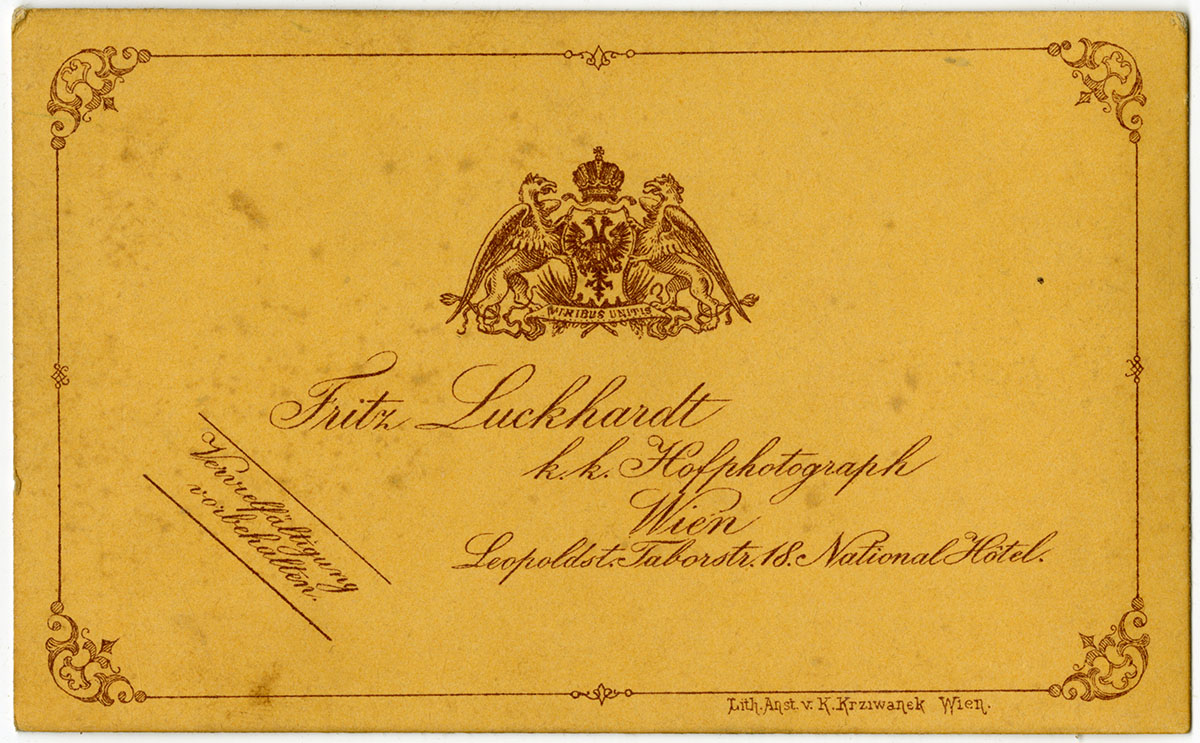 VIRIBUS UNITIS
Fritz Luckhardt
k. k. Hofphotograph
Wien
Leopoldst. Taborstr. 18. National Hôtel.
Vervielfältigung
vorbehalten.
Lith. Anst. v. K. Krziwanek Wien.